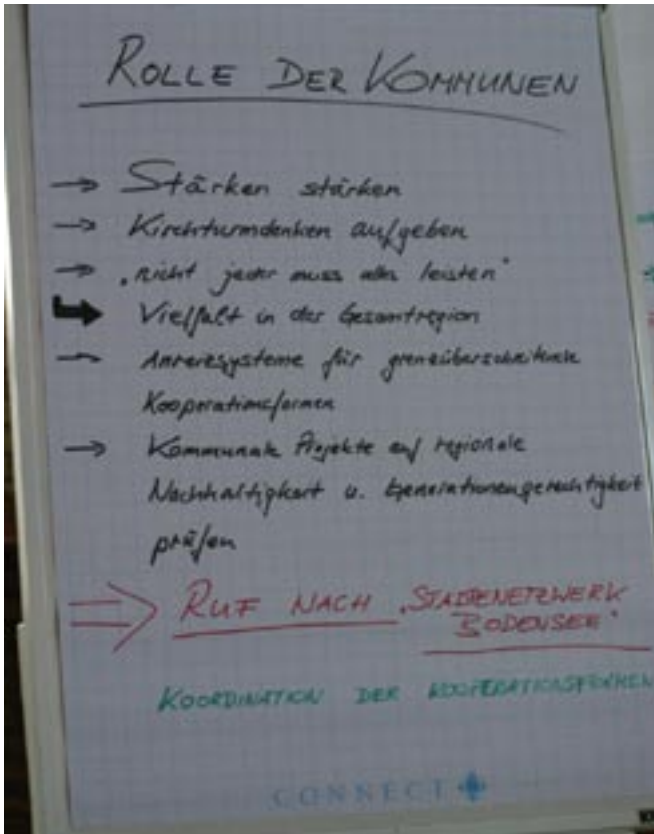 ROLLE DER KOMMUNEN
→ Stärken stärken
→ Kirchturmdenken aufgeben
→ „nicht jeder muss alles leisten"
➡ Vielfalt in der Gesamtregion
→ Anreizsysteme für grenzüberschreitende
Kooperationsformen
→ Kommunale Projekte auf regionale
Nachhaltigkeit u. Generationengerechtigkeit
prüfen
⇒ RUF NACH „STÄDTENETZWERK
BODENSEE"
KOORDINATION DER KOOPERATIONSFORMEN
CONNECT